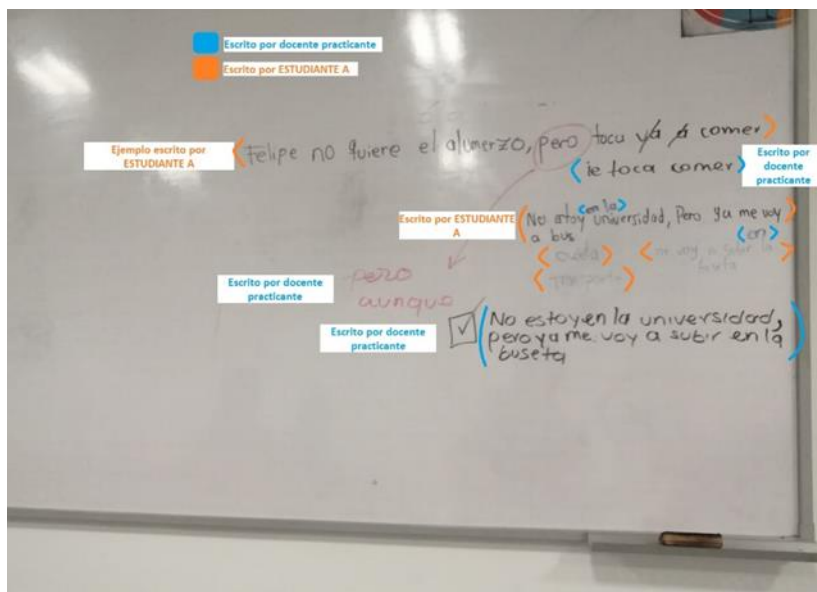 Escrito por docente practicante
Escrito por ESTUDIANTE A
Ejemplo escrito por ESTUDIANTE A
Felipe no quiere el alumerzo, pero toca ya a comer
le toca comer
Escrito por docente practicante
Escrito por ESTUDIANTE A
en la
No estoy universidad, Pero ya me voy
a bus
en
me voy a subir la
transporte
Escrito por docente practicante
pero
aunque
Escrito por docente practicante
No estoy en la universidad,
pero ya me voy a subir en la
buseta